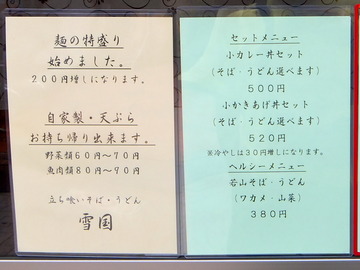 麺の特盛り
始めました。
200円増しになります。
自家製・天ぷら
お持ち帰り出来ます。
野菜類60円～70円
魚肉類80円～90円
立ち喰いそば・うどん
雪国
セットメニュー
小カレー丼セット
(そば・うどん選べます)
500円
小かきあげ丼セット
(そば・うどん選べます)
520円
※冷やしは30円増しになります。
ヘルシーメニュー
若山そば・うどん
(ワカメ・山菜)
380円